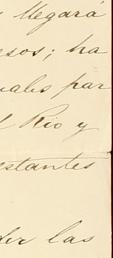 llegará
esos; ha
uales par
l Rio y
estantes
der las